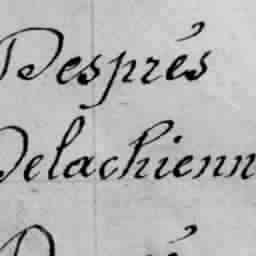 Després
Delachienn